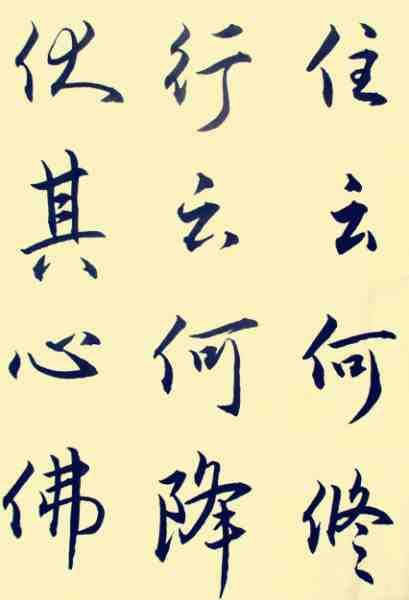 住云何修
行云何降
伏其心佛